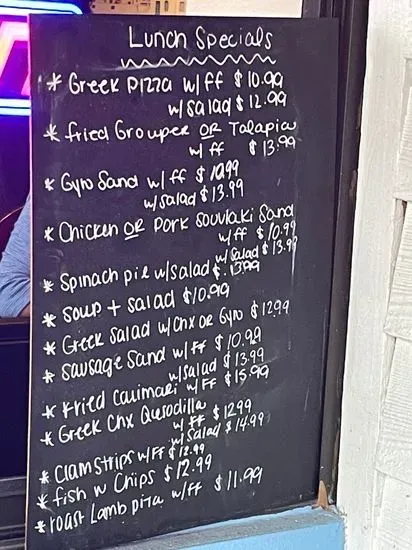 Lunch Specials
* Greek Pizza w/ ff $10.99
w/ salad $12.99
* Fried Grouper OR Talapia
w/ ff $13.99
* Gyro Sand w/ ff $10.99
w/ salad $13.99
* Chicken OR Pork Souvlaki Sand
w/ ff $10.99
w/ salad $13.99
* Spinach pie w/ salad $.13.99
* Soup + salad $10.99
* Greek Salad w/ chx OR Gyro $12.99
* Sausage Sand w/ ff $10.99
w/ salad $13.99
* Fried Calimari w/ FF $15.99
* Greek Chx Quesodilla
w/ ff $12.99
w/ salad $14.99
* Clam Strips w/ FF $12.99
* Fish w Chips $12.99
* roast Lamb pita w/ ff $11.99